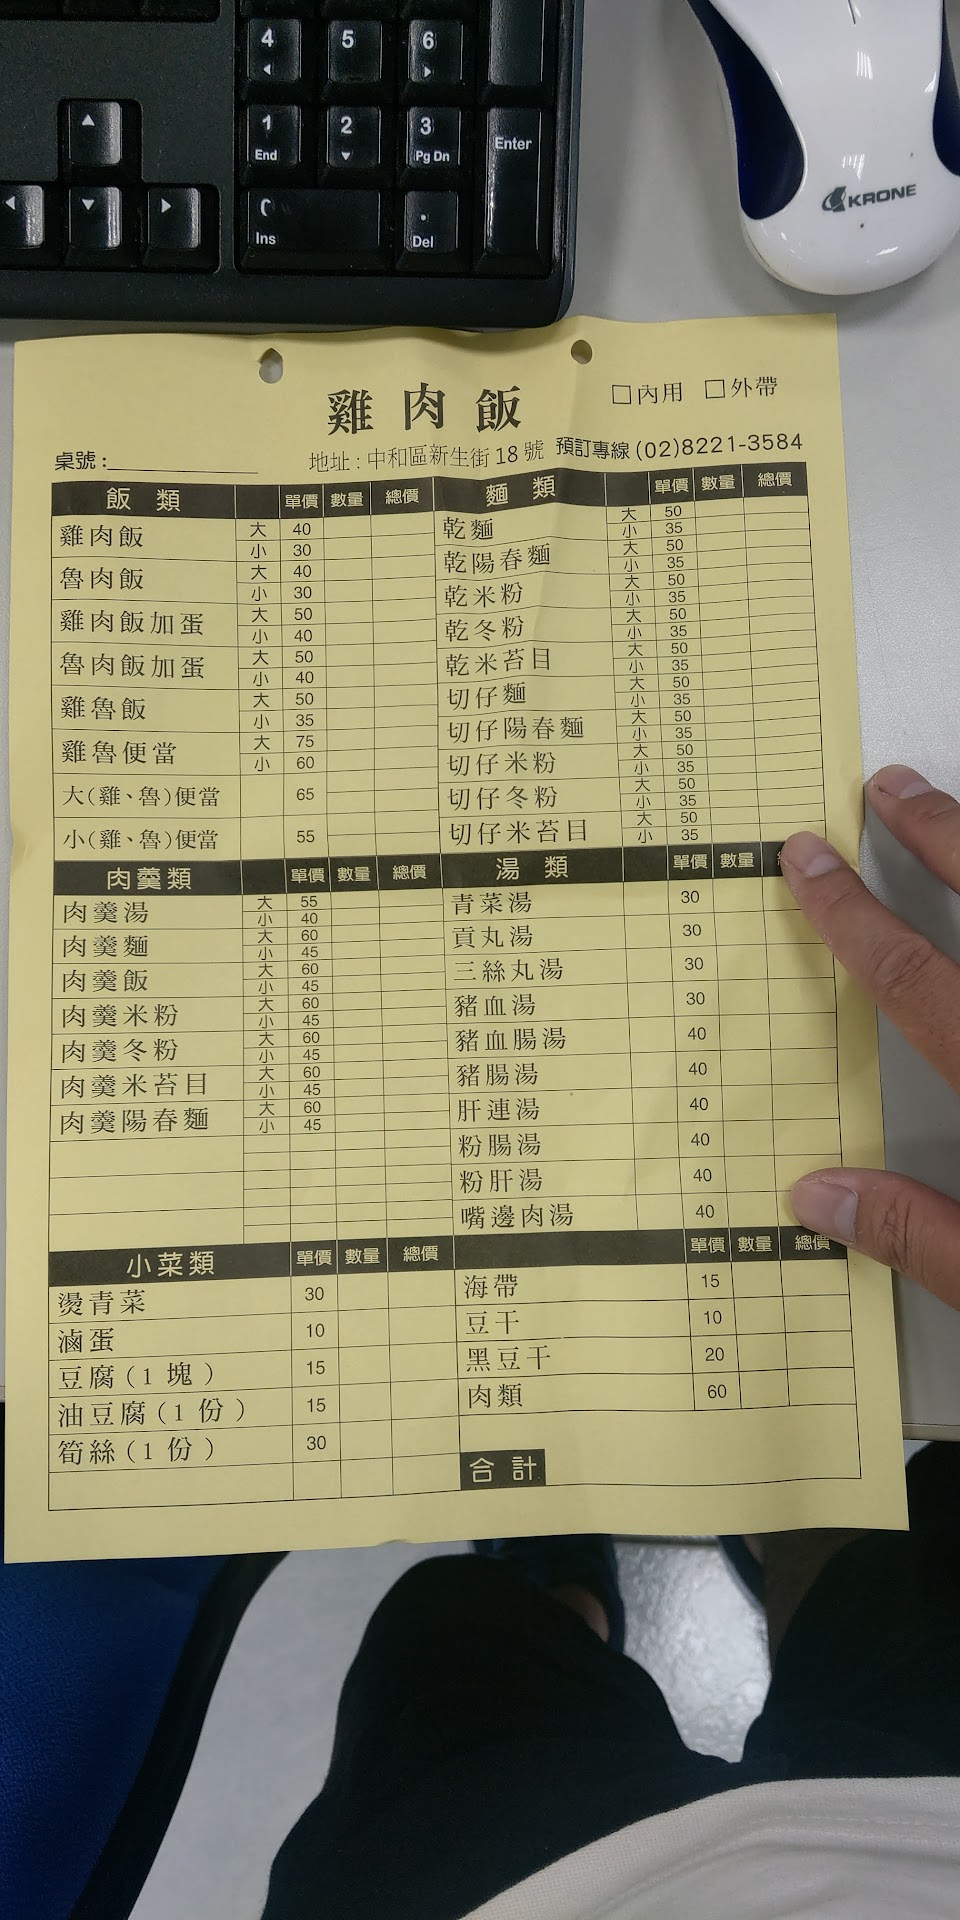 4
5
6
1
End
2
3
Pg Dn
Enter
Ins
.
Del
KRONE
雞肉飯
□內用 □外帶
桌號:
地址:中和區新生街18號 預訂專線(02)8221-3584
飯類 單價 數量 總價
雞肉飯 大 40
小 30
魯肉飯 大 40
小 30
雞肉飯加蛋 大 50
小 40
魯肉飯加蛋 大 50
小 40
雞魯飯 大 50
小 35
雞魯便當 大 75
小 60
大(雞、魯)便當 65
小(雞、魯)便當 55
麵類 單價 數量 總價
乾麵 大 50
小 35
乾陽春麵 大 50
小 35
乾米粉 大 50
小 35
乾冬粉 大 50
小 35
乾米苔目 大 50
小 35
切仔麵 大 50
小 35
切仔陽春麵 大 50
小 35
切仔米粉 大 50
小 35
切仔冬粉 大 50
小 35
切仔米苔目 大 50
小 35
肉羹類 單價 數量 總價
肉羹湯 大 55
小 40
肉羹麵 大 60
小 45
肉羹飯 大 60
小 45
肉羹米粉 大 60
小 45
肉羹冬粉 大 60
小 45
肉羹米苔目 大 60
小 45
肉羹陽春麵 大 60
小 45
湯類 單價 數量
青菜湯 30
貢丸湯 30
三絲丸湯 30
豬血湯 30
豬血腸湯 40
豬腸湯 40
肝連湯 40
粉腸湯 40
粉肝湯 40
嘴邊肉湯 40
小菜類 單價 數量 總價
燙青菜 30
滷蛋 10
豆腐(1塊) 15
油豆腐(1份) 15
筍絲(1份) 30
單價 數量 總價
海帶 15
豆干 10
黑豆干 20
肉類 60
合計